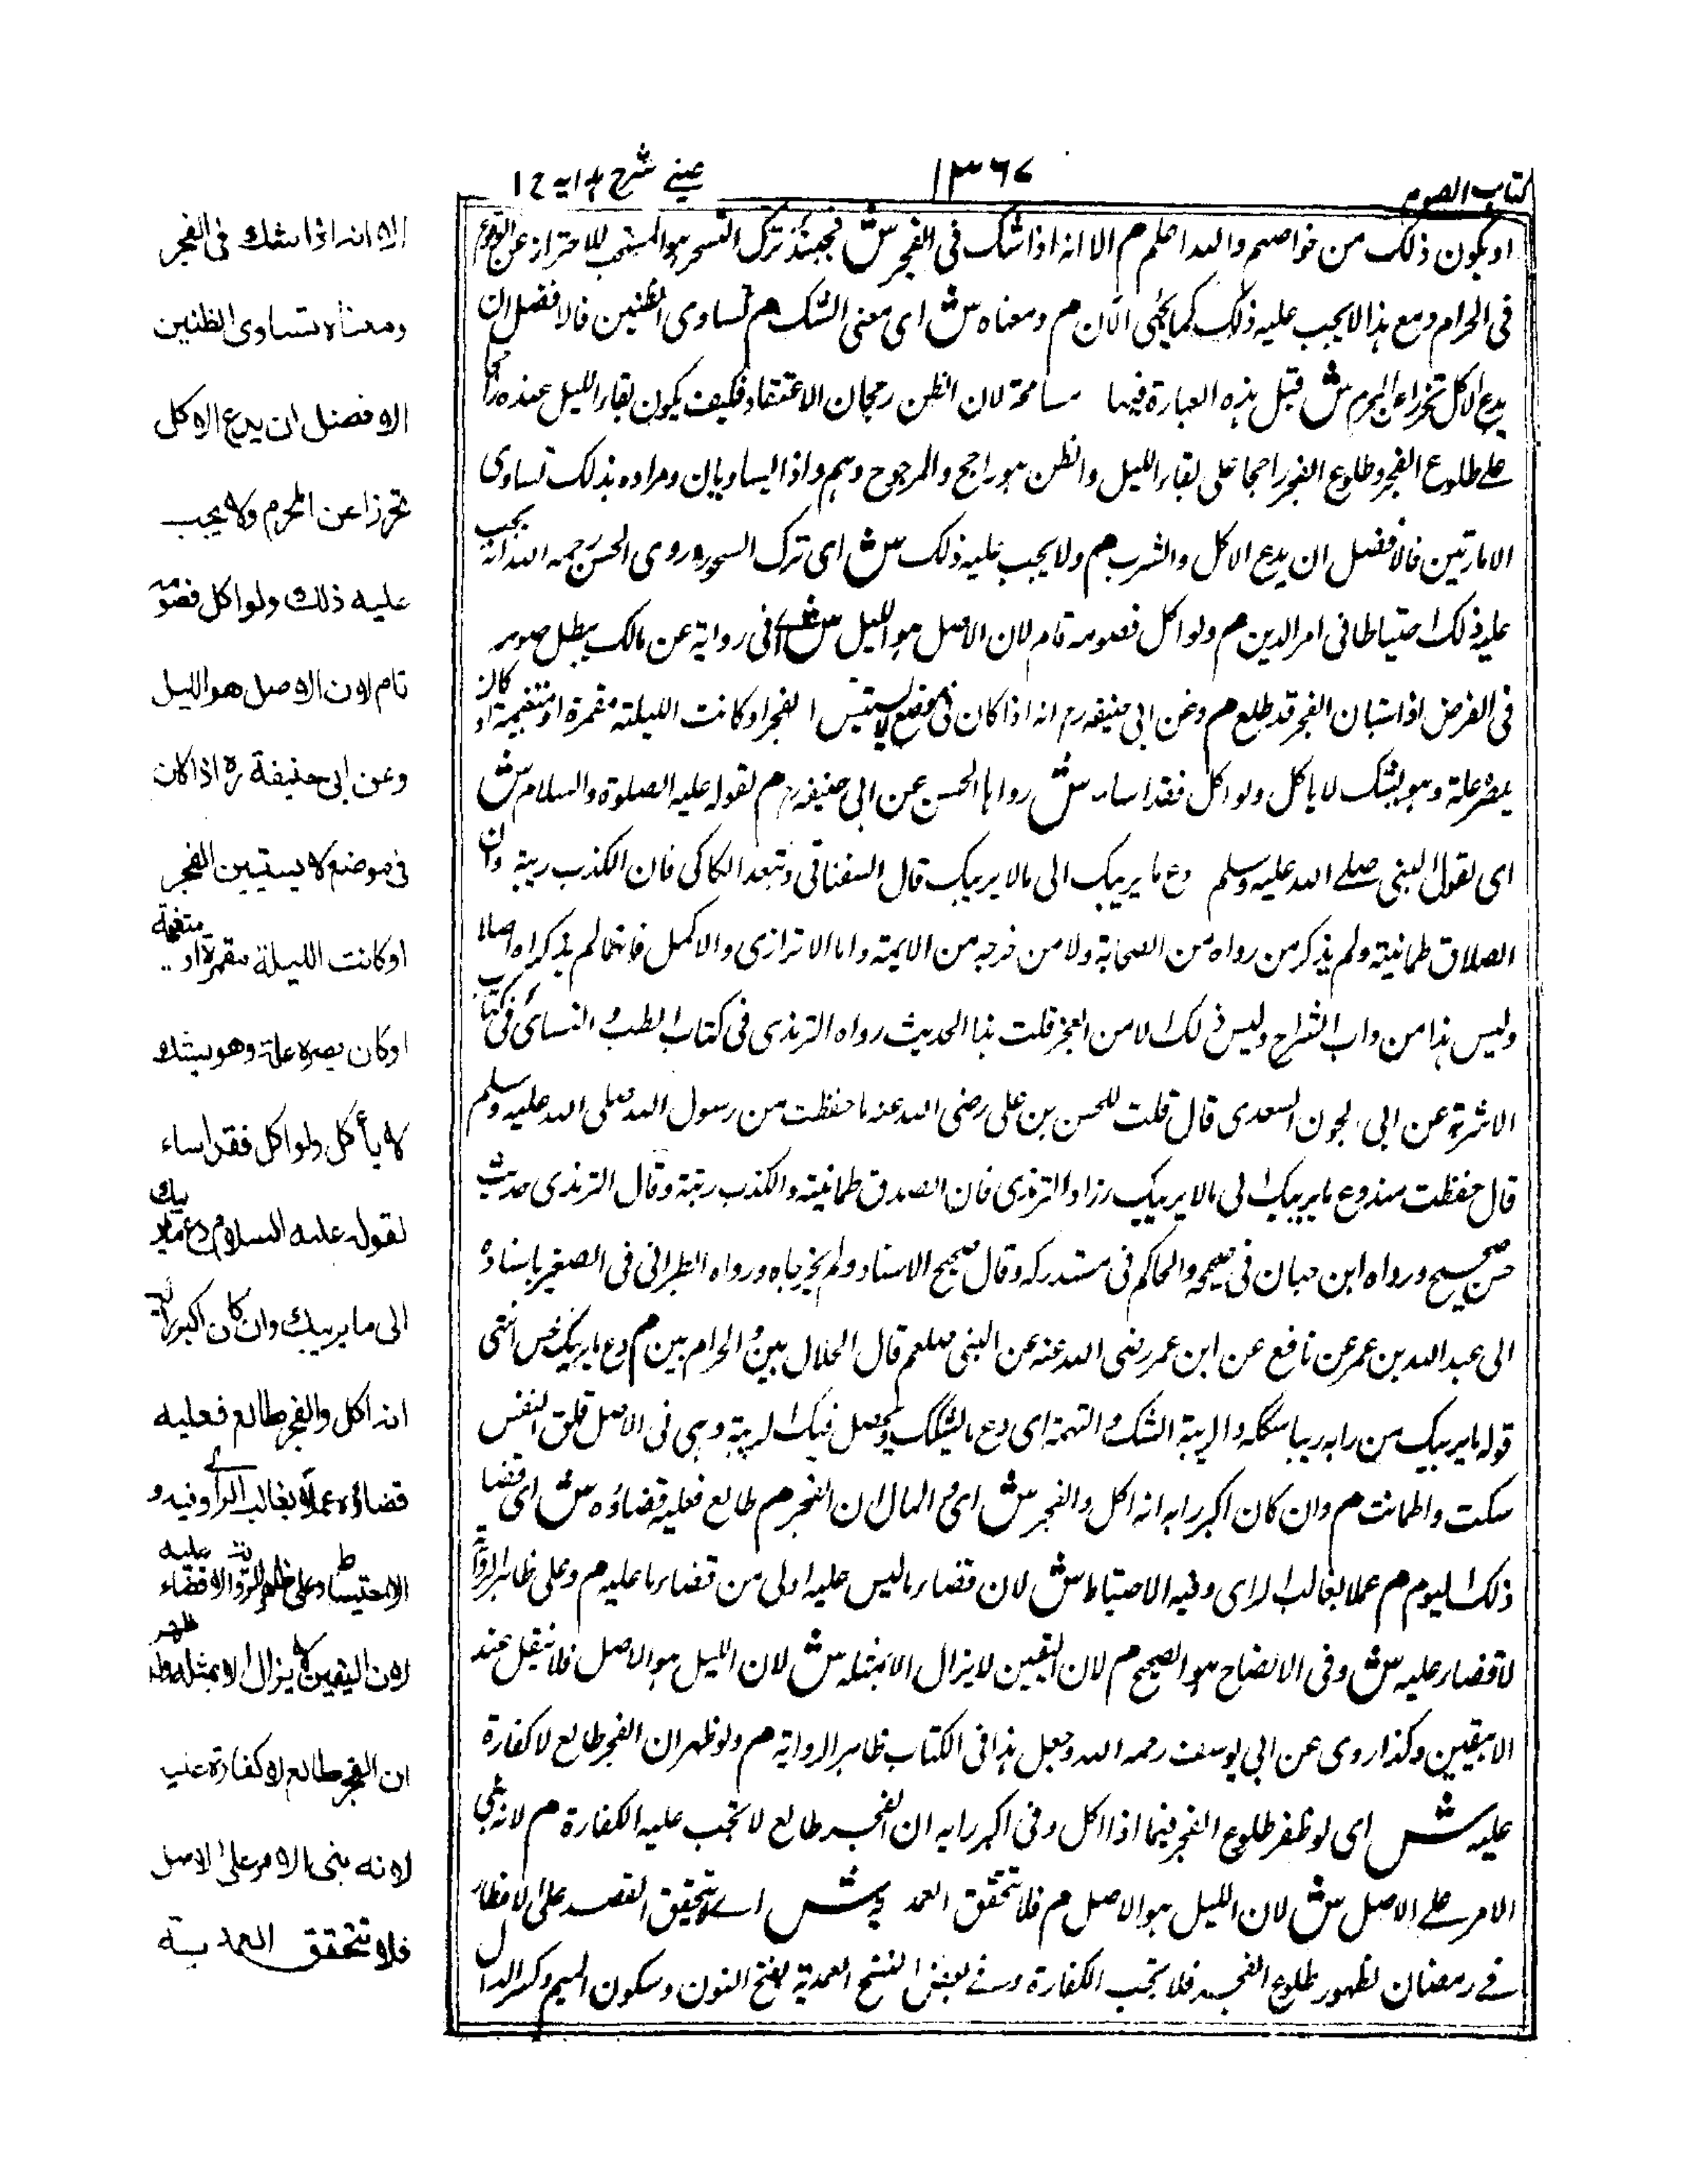 كتاب الصوم
١٣٦٧
عينے شرح هدايه ج ١
او يكون ذلك من خواصهم والله اعلم م الا انه اذا شك فى الفجر ش فحينئذ ترك التسحر هو المستحب للاحتراز عن الوقوع
فى الحرام ومع هذا لا يجب عليه ذلك كما يجئ الآن م ومعناه ش اى معنى الشك م تساوى الظنين فالافضل ان
يدع الاكل تحرزا عن المحرم ش قيل هذه العبارة فيها مسامحة لان الظن رجحان الاعتقاد فكيف يكون بقاء الليل عنده راجحا
علے طلوع الفجر وطلوع الفجر راجحا على بقاء الليل والظن هو راجح والمرجوح وهم واذا اليساويان ومراده بذلك تساوى
الامارتين فالافضل ان يدع الاكل والشرب م ولا يجب عليه ذلك ش اى ترك السحور وروى الحسن رحمه الله انه يجب
عليه ذلك احتياطا فى امر الدين م ولو اكل فصومه تام لان الاصل هو الليل ش فى رواية عن مالك يبطل صومه
فى الفرض اذا استبان الفجر قد طلع م وعن ابى حنيفه رح انه اذا كان فى موضع لا يستبين الفجر او كانت الليلة مقمرة او متغيمة او كان
ببصره علة وهو يشك لا ياكل ولو اكل فقد اساء ش رواها الحسن عن ابى حنيفه رح م لقوله عليه الصلوة والسلام ش
اى لقول النبى صلے الله عليه وسلم دع ما يريبك الى مالا يريبك قال السغناقى وتبعه الكاكى فان الكذب ريبة وان
الصدق طمانينة ولم يذكر من رواه من الصحابة ولا من خرجه من الايمة واما الاترازى والاكمل فانهما لم يذكراه اصلا
وليس هذا من داب الشراح وليس ذلك الا من العجز قلت هذا الحديث رواه الترمذى فى كتاب الطب و النسائ فى كتاب
الاشربة عن ابى الجون السعدى قال قلت للحسن بن على رضى الله عنه ما حفظت من رسول الله صلى الله عليه وسلم
قال حفظت منه دع ما يريبك الى مالا يريبك زاد الترمذى فان الصدق طمانينة والكذب ريبة وقال الترمذى حديث
حسن صحيح ورواه ابن حبان فى صحيحه والحاكم فى مستدركه وقال صحيح الاسناد ولم يخرجاه ورواه الطبرانى فى الصغير باسناده
الى عبد الله بن عمر عن نافع عن ابن عمر رضى الله عنه عن النبى صلعم قال الحلال بين و الحرام بين م دع ما يريبك ش انتهى
قوله ما يريبك من رابه ريبا شككه والريبة الشك و التهمة اى دع ما يشكك ويحصل فيك الريبة وهى فى الاصل قلق النفس
سكت واطمانت م وان كان اكبر رايه انه اكل والفجر ش اى و الحال ان الفجر م طالع فعليه قضاؤه ش اى قضا
ذلك اليوم م عملا بغالب الراى وفيه الاحتياط ش لان قضاء ماليس عليه اولى من قضاء ما عليه م وعلى ظاهر الرواية
لا قضاء عليه ش وفى الايضاح هو الصحيح م لان اليقين لا يزال الا بمثله ش لان الليل هو الاصل فلا ينقل عنه
الا بيقين وكذا روى عن ابى يوسف رحمه الله وجعل هذا فى الكتاب ظاهر الرواية م ولو ظهر ان الفجر طالع لا كفارة
عليه ش اى لو ظهر طلوع الفجر فيما اذا اكل وفى اكبر رايه ان الفجر طالع لا تجب عليه الكفارة م لانه بنى
الامر علے الاصل ش لان الليل هو الاصل م فلا تتحقق العمدية ش اے لا يتحقق القصد على الافطار
فے رمضان لظهور طلوع الفجر فلا تجب الكفارة وفے بعض النسخ العمدية بفتح النون وسكون الميم وكسر الدال
الا انه اذا شك فى الفجر
ومعناه تساوى الظنين
الافضل ان يدع الاكل
تحرزا عن المحرم ولا يجب
عليه ذلك ولو اكل فصومه
تام لان الاصل هو الليل
وعن ابى حنيفة رح اذا كان
فى موضع لا يستبين الفجر
او كانت الليلة مقمرة او متغيمة
او كان ببصره علة وهو يشك
لا يأكل ولو اكل فقد اساء
لقوله عليه السلام دع ما يريبك
الى ما يريبك وان كان اكبر رايه
انه اكل والفجر طالع فعليه
قضاؤه عملا بغالب الرأے وفيه
الاحتياط وعلى ظاهر الرواية لا قضاء عليه
لان اليقين لا يزال الا بمثله ولو ظهر
ان الفجر طالع لا كفارة عليه
لانه بنى الامر على الاصل
فلا تتحقق العمدية